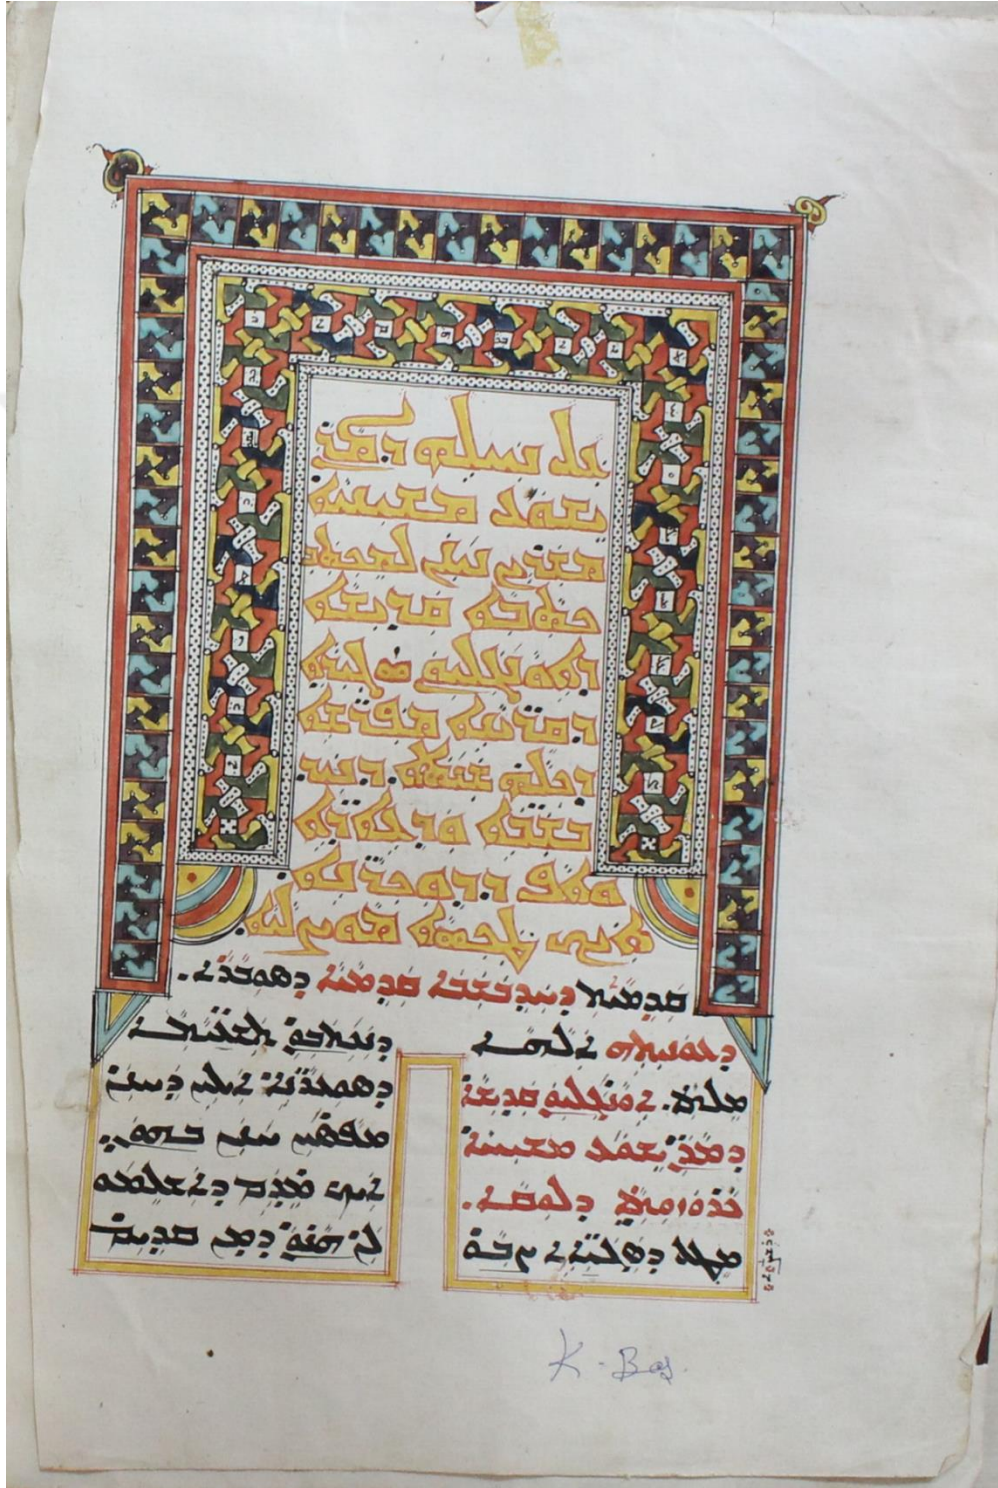 ܥܠ ܚܝܠܗ ܕܡܪܢ
ܝܫܘܥ ܡܫܝܚܐ
ܡܫܪܝܢ ܚܢܢ ܠܡܟܬܒ
ܟܬܒܐ ܩܕܝܫܐ
ܕܐܘܢܓܠܝܘܢ
ܕܩܪ̈ܝܢܐ ܡܦܪ̈ܫܐ
ܕܟܠܗ ܫܢܬܐ ܕܚܕ
ܒܫܒ̈ܐ ܘܕܥܐܕ̈ܐ
ܘܐܦ ܕܕܘܟܪ̈ܢܐ
ܐܝܟ ܛܟܣܐ
ܩܕܡܝܬ ܕܚܕܒܫܒܐ ܩܕܡܝܐ ܕܣܘܒܪܐ.
ܐܠܗܐ
ܡܠܬܐ. ܐܘܢܓܠܝܘܢ ܩܕܝܫܐ
ܕܡܪܢ ܝܫܘܥ ܡܫܝܚܐ
ܟܪܘܙܘܬܐ ܕܠܘܩܐ.
ܡܛܠ ܕܣܓܝ̈ܐܐ ܨܒܘ
ܕܢܟܬܒܘܢ ܬܫܥܝ̈ܬܐ
ܕܣܘܥܪ̈ܢܐ ܐܝܠܝܢ ܕܚܢܢ
ܡܦܣܝܢ ܚܢܢ ܒܗܘܢ.
ܐܝܟ ܡܕܡ ܕܐܫܠܡܘ
ܠܢ ܗܢܘܢ ܕܡܢ ܩܕܝܡ
K-Bas.